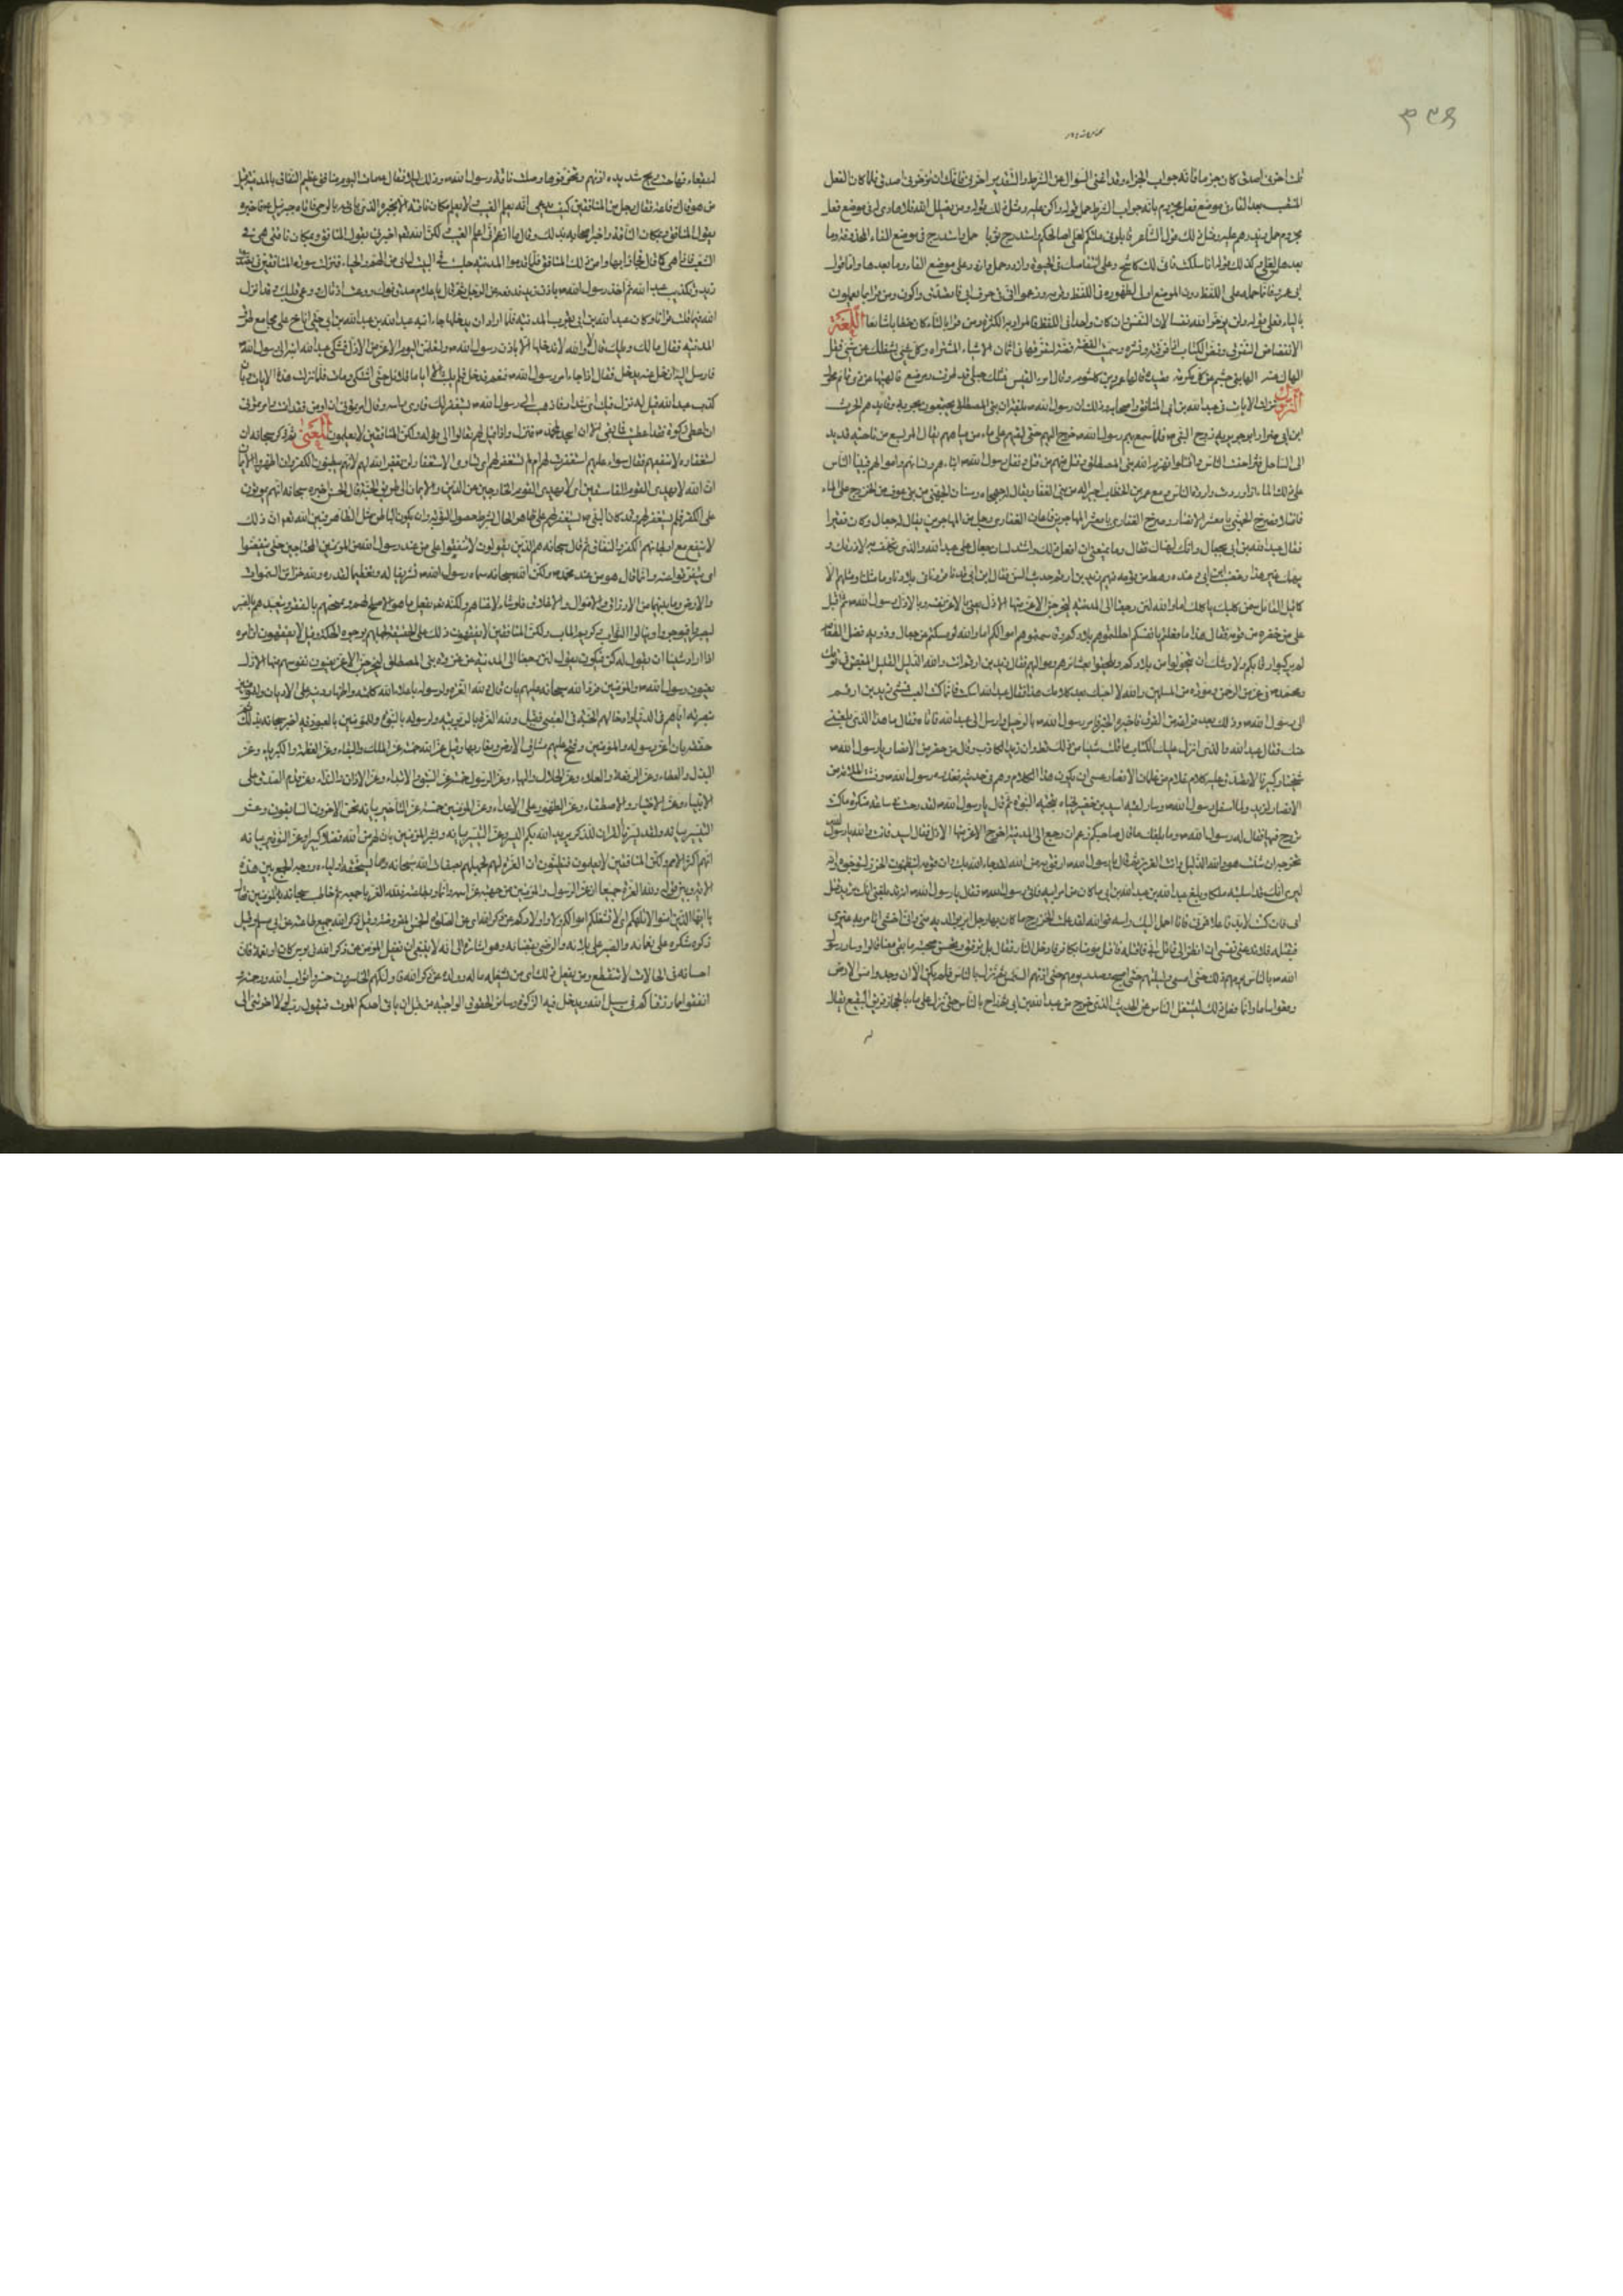 ۴۳۹
قلت اخرني اصدق كان جزما فانه جواب الجزاء وقد اغنى السؤال عن الشرط والتقدير اخرني فانك ان تؤخرني اصدق فلما كان الفعل
المنتصب بعد الفاء في موضع فعل مجزوم بانه جواب الشرط حمل قوله واكن عليه ومثل ذلك قوله ومن يضلل الله فلا هادي له في موضع فعل
مجزوم حمل ويذرهم عليه ومثل ذلك قول الشاعر فابلوني بليتكم لعلي اصالحكم واستدرج نويا حمل واستدرج في موضع الفاء المحذوفة وما
بعدها لعلي وكذلك قوله انا سلكت فانني لك كاشح وعلى انتقاصك في الحيوة وازدد حمل وازدد على موضع الفاء وما بعدها واما قول
ابي عمرو فانما حمله على اللفظ دون الموضع
بالياء فعلى قوله ولن يؤخر الله نفسا لان النفس وان كان واحدا في اللفظ فالمراد به الكثرة ومن قرا بالتاء كان خطابا شايعا اللغة
الانفضاض التفرق وفض الكتاب اذا فرقه ونشره وسميت الفضة فضة لتفرقها في اثمان الاشياء المشتراة وكل شيء يشغلك عن شيء فقد
الهاك عنه قال الهى بني جشم عن كل مكرمة قصيدة قالها عمرو بن كلثوم وقال امرؤ القيس فمثلك حبلى قد طرقت ومرضع فالهيتها عن ذي تمائم محول
النزول نزلت الايات في عبد الله بن ابي المنافق واصحابه وذلك ان رسول الله ص بلغه ان بني المصطلق يجتمعون لحربه وقايدهم الحرث
ابن ابي ضرار ابو جويرية زوج النبي ص فلما سمع بهم رسول الله ص خرج اليهم حتى لقيهم على ماء من مياههم يقال له المريسيع من ناحية قديد
الى الساحل فتزاحف الناس واقتتلوا فهزم الله بني المصطلق وقتل منهم من قتل ونفل رسول الله ص ابناءهم ونساءهم واموالهم فبينا الناس
على ذلك الماء اذ وردت واردة الناس ومع عمر بن الخطاب اجير له من بني غفار يقال له جهجاه وسنان الجهني من بني عوف من الخزرج على الماء
فاقتتلا فصرخ الجهني يا معشر الانصار وصرخ الغفاري يا معشر المهاجرين فاعان الغفاري رجل من المهاجرين يقال له جعال وكان فقيرا
فقال عبد الله بن ابي لجعال وانك لهناك فقال وما يمنعني ان افعل ذلك واشتد لسان جعال على عبد الله فقال عبد الله والذي يحلف به لاذرنك و
يهمك غير هذا وغضب ابن ابي وعنده رهط من قومه فيهم زيد بن ارقم حديث السن فقال ابن ابي قد نافرونا وكاثرونا في بلادنا والله ما مثلنا ومثلهم الا
كما قال القائل سمن كلبك ياكلك اما والله لئن رجعنا الى المدينة ليخرجن الاعز منها الاذل يعني بالاعز نفسه وبالاذل رسول الله ص ثم اقبل
على من حضره من قومه فقال هذا ما فعلتم بانفسكم احللتموهم بلادكم وقاسمتموهم اموالكم اما والله لو امسكتم عن جعال وذويه فضل الطعام
لم يركبوا رقابكم ولاوشكوا ان يتحولوا من بلادكم ويلحقوا بعشائرهم ومواليهم فقال زيد بن ارقم انت والله الذليل القليل المبغض في قومك
ومحمد ص في عز من الرحمن ومودة من المسلمين والله لا احبك بعد كلامك هذا فقال عبد الله اسكت فانما كنت العب فمشى زيد بن ارقم
الى رسول الله ص وذلك بعد فراغه من الغزو فاخبره الخبر فامر رسول الله ص بالرحيل وارسل الى عبد الله فاتاه فقال ما هذا الذي بلغني
عنك فقال عبد الله والذي انزل عليك الكتاب ما قلت شيئا من ذلك قط وان زيدا لكاذب وقال من حضر من الانصار يا رسول الله ص
شيخنا وكبيرنا لا تصدق عليه كلام غلام من غلمان الانصار عسى ان يكون هذا الغلام وهم في حديثه فعذره رسول الله ص وفشت الملامة من
الانصار لزيد ولما استقل رسول الله ص وسار لقيه اسيد بن حضير فحياه بتحية النبوة ثم قال يا رسول الله ص لقد رحت في ساعة منكرة ما كنت
تروح فيها فقال له رسول الله ص وما بلغك ما قال صاحبكم زعم ان رجع الى المدينة اخرج الاعز منها الاذل فقال اسيد فانت والله يا رسول الله
تخرجه ان شئت هو والله الذليل وانت العزيز ثم قال يا رسول الله ص ارفق به فوالله لقد جاء الله بك وان قومه لينظمون له الخرز ليتوجوه وانه
ليرى انك قد استلبته ملكا وبلغ عبد الله بن عبد الله بن ابي ما كان من امر ابيه فاتى رسول الله ص فقال يا رسول الله ص انه قد بلغني انك تريد قتل
ابي فان كنت لا بد فاعلا فمرني به فانا احمل اليك راسه فوالله لقد علمت الخزرج ما كان بها رجل ابر بوالديه مني واني اخشى ان تامر به غيري
فيقتله فلا تدعني نفسي ان انظر الى قاتل ابي فاقتله فاقتل مؤمنا بكافر فادخل النار فقال بل نرفق به ونحسن صحبته ما بقي معنا قالوا وسار رسول
الله ص بالناس يومهم ذلك حتى امسى وليلتهم حتى اصبح وصدر يومهم حتى اذتهم الشمس ثم نزل بالناس فلم يكن الا ان وجدوا مس الارض
وقعوا نياما وانما فعل ذلك ليشغل الناس عن الحديث الذي خرج من عبد الله بن ابي ثم راح بالناس حتى نزل على ماء بالحجاز فويق البقيع يقال
له
لبقعاء فهاجت ريح شديدة اذتهم وتخوفوها وضلت ناقة رسول الله ص وذلك ليلا فقال مات اليوم منافق عظيم النفاق بالمدينة قيل
من هو قال رفاعة فقال رجل من المنافقين كيف يزعم انه يعلم الغيب ولا يعلم مكان ناقته الا يخبره الذي ياتيه بالوحي فاتاه جبرئيل ع فاخبره
بقول المنافق وبمكان الناقة واخبر اصحابه بذلك وقال ما ازعم اني اعلم الغيب ولكن الله تعالى اخبرني بقول المنافق وبمكان ناقتي هي في
الشعب فاذا هي كما قال فجاؤا بها وامن ذلك المنافق فلما قدموا المدينة وجدوا فنزلت سورة المنافقين في
زيد وتكذيب عبد الله ثم اخذ رسول الله ص باذن زيد فرفعه عن الرحل ثم قال يا غلام صدق فوك ووعت اذناك ووعى قلبك وقد انزل
الله فيما قلت قرانا وكان عبد الله بن ابي بقرب المدينة فلما اراد ان يدخلها جاءه ابنه عبد الله بن عبد الله بن ابي حتى اناخ على مجامع طرق
المدينة فقال مالك ويلك قال والله لا تدخلها الا باذن رسول الله ص ولتعلمن اليوم من الاعز من الاذل فشكى عبد الله ابنه الى رسول الله ص
فارسل اليه ان خل عنه يدخل فقال اما اذا جاء امر رسول الله ص فنعم فدخل فلم يلبث الا اياما قلائل حتى اشتكى ومات فلما نزلت هذه الايات وبان
كذب عبد الله قيل له نزل فيك اي شداد فاذهب الى رسول الله ص يستغفر لك فلوى راسه وقال امرتموني ان اومن فقد امنت وامرتموني
ان اعطي زكوة فقد اعطيت فما بقي الا ان اسجد لمحمد ص فنزل واذا قيل لهم تعالوا الى قوله ولكن المنافقين لا يعلمون المعنى ثم ذكر سبحانه ان
استغفاره لا ينفعهم فقال سواء عليهم استغفرت لهم ام لم تستغفر لهم اي يتساوى الاستغفار لن يغفر الله لهم لانهم يبطنون الكفر وان اظهروا الايمان
ان الله لا يهدي القوم الفاسقين اي لا يهدي القوم الخارجين عن الدين والايمان الى طريق الجنة قال الحسن اخبره سبحانه انهم يموتون
على الكفر فلم يستغفر لهم وقد كان النبي ص يستغفر لهم على ظاهر الحال بشرط حصول التوبة وان يكون الباطن مثل الظاهر فبين الله تعالى ان ذلك
لا ينفع مع ابطانهم الكفر والنفاق ثم قال سبحانه هم الذين يقولون لا تنفقوا على من عند رسول الله من المؤمنين المحتاجين حتى ينفضوا
اي يتفرقوا عنه وانما قال هو من عند محمد ص ولكن الله سبحانه سماه رسول الله ص تشريفا له وتعظيما لقدره ولله خزائن السموات
والارض وما بينهما من الارزاق والاموال والاعلاق فلو شاء لاغناهم ولكنه تعالى يفعل ما هو الاصلح لهم ويمتحنهم بالفقر ويتعبدهم بالصبر
ليصبروا فيوجروا وينالوا الثواب وكريم الماب ولكن المنافقين لا يفقهون ذلك على الحقيقة لجهلهم بوجوه الحكمة وقيل لا يفقهون ان امره
اذا اراد شيئا ان يقول له كن فيكون يقولون لئن رجعنا الى المدينة من غزوة بني المصطلق ليخرجن الاعز يعنون نفوسهم منها الاذل
يعنون رسول الله ص والمؤمنين فرد الله سبحانه عليهم بان قال ولله العزة ولرسوله باعلاء الله كلمته واظهاره دينه على الاديان وللمؤمنين
بنصرته اياهم في الدنيا وادخالهم الجنة في العقبى وقيل ولله العزة بالربوبية ولرسوله بالنبوة وللمؤمنين بالعبودية اخبر سبحانه بذلك ثم
حققه بان اعز رسوله والمؤمنين وفتح عليهم مشارق الارض ومغاربها وقيل عز الله خمسة عز الملك والبقاء وعز العظمة والكبرياء وعز
البذل والعطاء وعز الرفعة والعلاء وعز الجلال والبهاء وعز الرسول خمسة عز السبق والابتداء وعز الاذان والنداء وعز قدم الصدق على
الانبياء وعز الاختيار والاصطفاء وعز الظهور على الاعداء وعز المؤمنين خمسة عز التاخير بيانه نحن الاخرون السابقون وعز
التيسير بيانه ولقد يسرنا القران للذكر يريد الله بكم اليسر وعز التبشير بيانه وبشر المؤمنين بان لهم من الله فضلا كبيرا وعز التوقير بيانه
انهم اكثر الامم ولكن المنافقين لا يعلمون فيظنون ان العزة لهم لجهلهم بصفات الله سبحانه وما يستحقه اولياؤه ووجه الجمع بين هذه
الاية وبين قوله ولله العزة جميعا ان عز الرسول والمؤمنين من جهته عز اسمه وانما بطاعته فلله العزة باجمعها ثم خاطب سبحانه المؤمنين فقال
يا ايها الذين امنوا لا تلهكم اي لا تشغلكم اموالكم ولا اولادكم عن ذكر الله اي عن الصلوة الخمس المفروضة وقيل ذكر الله جميع طاعته عن ابي مسلم وقيل
ذكره شكره على نعمائه والصبر على بلائه والرضا بقضائه وهو اشارة الى انه لا ينبغي ان يغفل المؤمن عن ذكر الله في بؤس كان او نعمة فان
احسانه في الحالات لا تنقطع ومن يفعل ذلك اي من شغله ماله وولده عن ذكر الله فاولئك هم الخاسرون خسروا ثواب الله ورحمته
انفقوا مما رزقناكم في سبيل الله ويدخل فيه الزكوة وسائر الحقوق الواجبة من قبل ان ياتي احدكم الموت فيقول رب لولا اخرتني الى